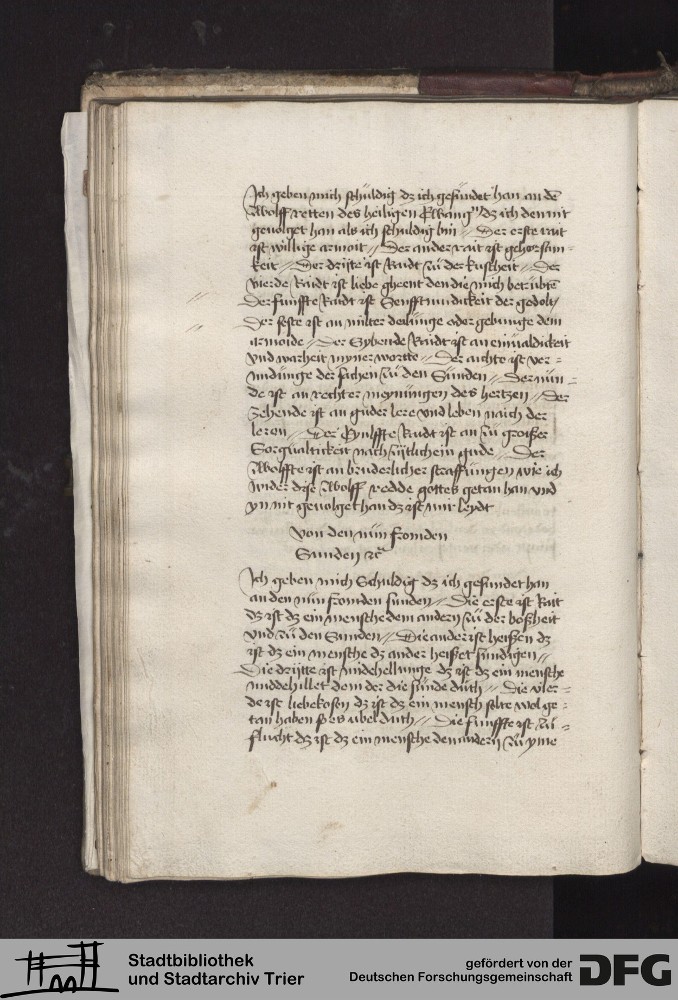 Ich geben mich schuldig dz ich gesundet han an dē
zwolff retten des heiligen Ewang dz ich den nit
gevolget han als ich schuldig bin // Der erste rait
ist willige armoit // Der ander rait ist gehorsam-
keit // Der dritte ist Raidt zü der kuscheit // Der
vierde Raidt ist liebe gheent den die mich betrübtē
Der funffte Raidt ist Senfftmudickeit der gedolt /
Der seste ist an milter deilünge oder gebunge dem
armoide // Der Sybende Raidt ist an einualdickeit
vnd warheit myner wortte // Der aichte ist ver-
midünge der sachen zü den Sunden // Der nün-
de ist an rechter meynüngen des hertzen // Der
zehende ist an güder lere vnd leben naich der
leren // Der Eynlffte Raidt ist an zü großer
Sorgualtickeit nach zijtlichem gude // Der
zwolffte ist an bruderlicher straffüngen wie ich
wider dise zwolff redde gottes getan han vnd
yn nit gevolget han dz ist mir leydt
Von den nün fromden
Sunden ꝛc
Ich geben mich Schuldig dz ich gesundet han
an den nün fromden sunden // Die erste ist Rait
dz ist dz ein mensche dem andern zü der boßheit
vnd zü den Sunden // Die ander ist heißen dz
ist dz ein mensche dz ander heißet sundigen //
Die drijtte ist midehellunge dz ist dz ein mensche
middehillet dem der die sünde düth // Die vier-
de ist liebekosen dz ist dz ein mensch solte wol ge-
tan haben so es ubel duth // Die funffte ist zü-
flucht dz ist dz ein mensche dem andern zü yme
Stadtbibliothek
und Stadtarchiv Trier
gefördert von der
Deutschen Forschungsgemeinschaft
DFG